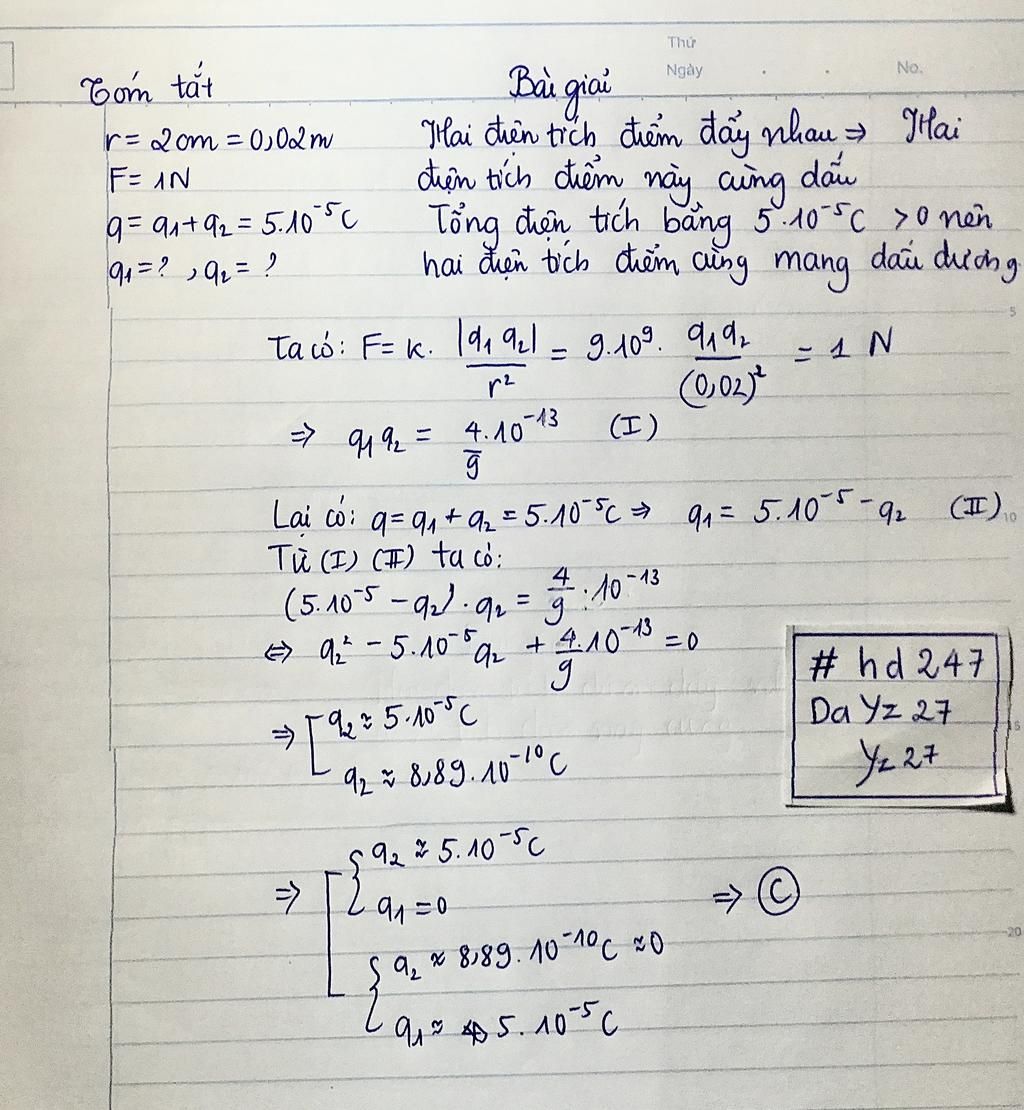 Thứ
Ngày . . No.
Tóm tắt
Bài giải
r = 2cm = 0,02m
F = 1N
q = q₁ + q₂ = 5.10⁻⁵C
q₁ = ? , q₂ = ?
Hai điện tích điểm đẩy nhau ⇒ Hai
điện tích điểm này cùng dấu
Tổng điện tích bằng 5.10⁻⁵C > 0 nên
hai điện tích điểm cùng mang dấu dương
Ta có: F = k. |q₁ q₂| / r² = 9.10⁹. q₁q₂ / (0,02)² = 1 N
⇒ q₁q₂ = 4/9 .10⁻¹³ (I)
Lại có: q = q₁ + q₂ = 5.10⁻⁵C ⇒ q₁ = 5.10⁻⁵ - q₂ (II)
Từ (I) (II) ta có:
(5.10⁻⁵ - q₂) . q₂ = 4/9 . 10⁻¹³
⇔ q₂² - 5.10⁻⁵q₂ + 4/9 .10⁻¹³ = 0
⇒ [ q₂ ≈ 5.10⁻⁵C
q₂ ≈ 8,89.10⁻¹⁰C
# hd 247
Da Yz 27
Yz 27
⇒ [ { q₂ ≈ 5.10⁻⁵C
q₁ = 0
⇒ Ⓒ
{ q₂ ≈ 8,89.10⁻¹⁰C ≈ 0
q₁ ≈ 5.10⁻⁵C
5
10
15
20